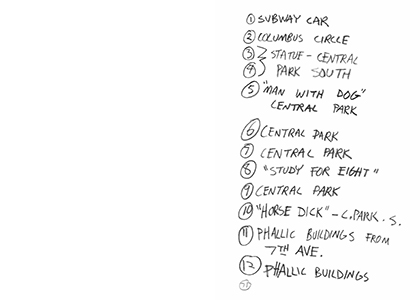 ① SUBWAY CAR
② COLUMBUS CIRCLE
③ } STATUE - CENTRAL
④ } PARK SOUTH
⑤ "MAN WITH DOG"
CENTRAL PARK
⑥ CENTRAL PARK
⑦ CENTRAL PARK
⑧ "STUDY FOR EIGHT"
⑨ CENTRAL PARK
⑩ "HORSE DICK" - C. PARK. S.
⑪ PHALLIC BUILDINGS FROM
7TH AVE.
⑫ PHALLIC BUILDINGS